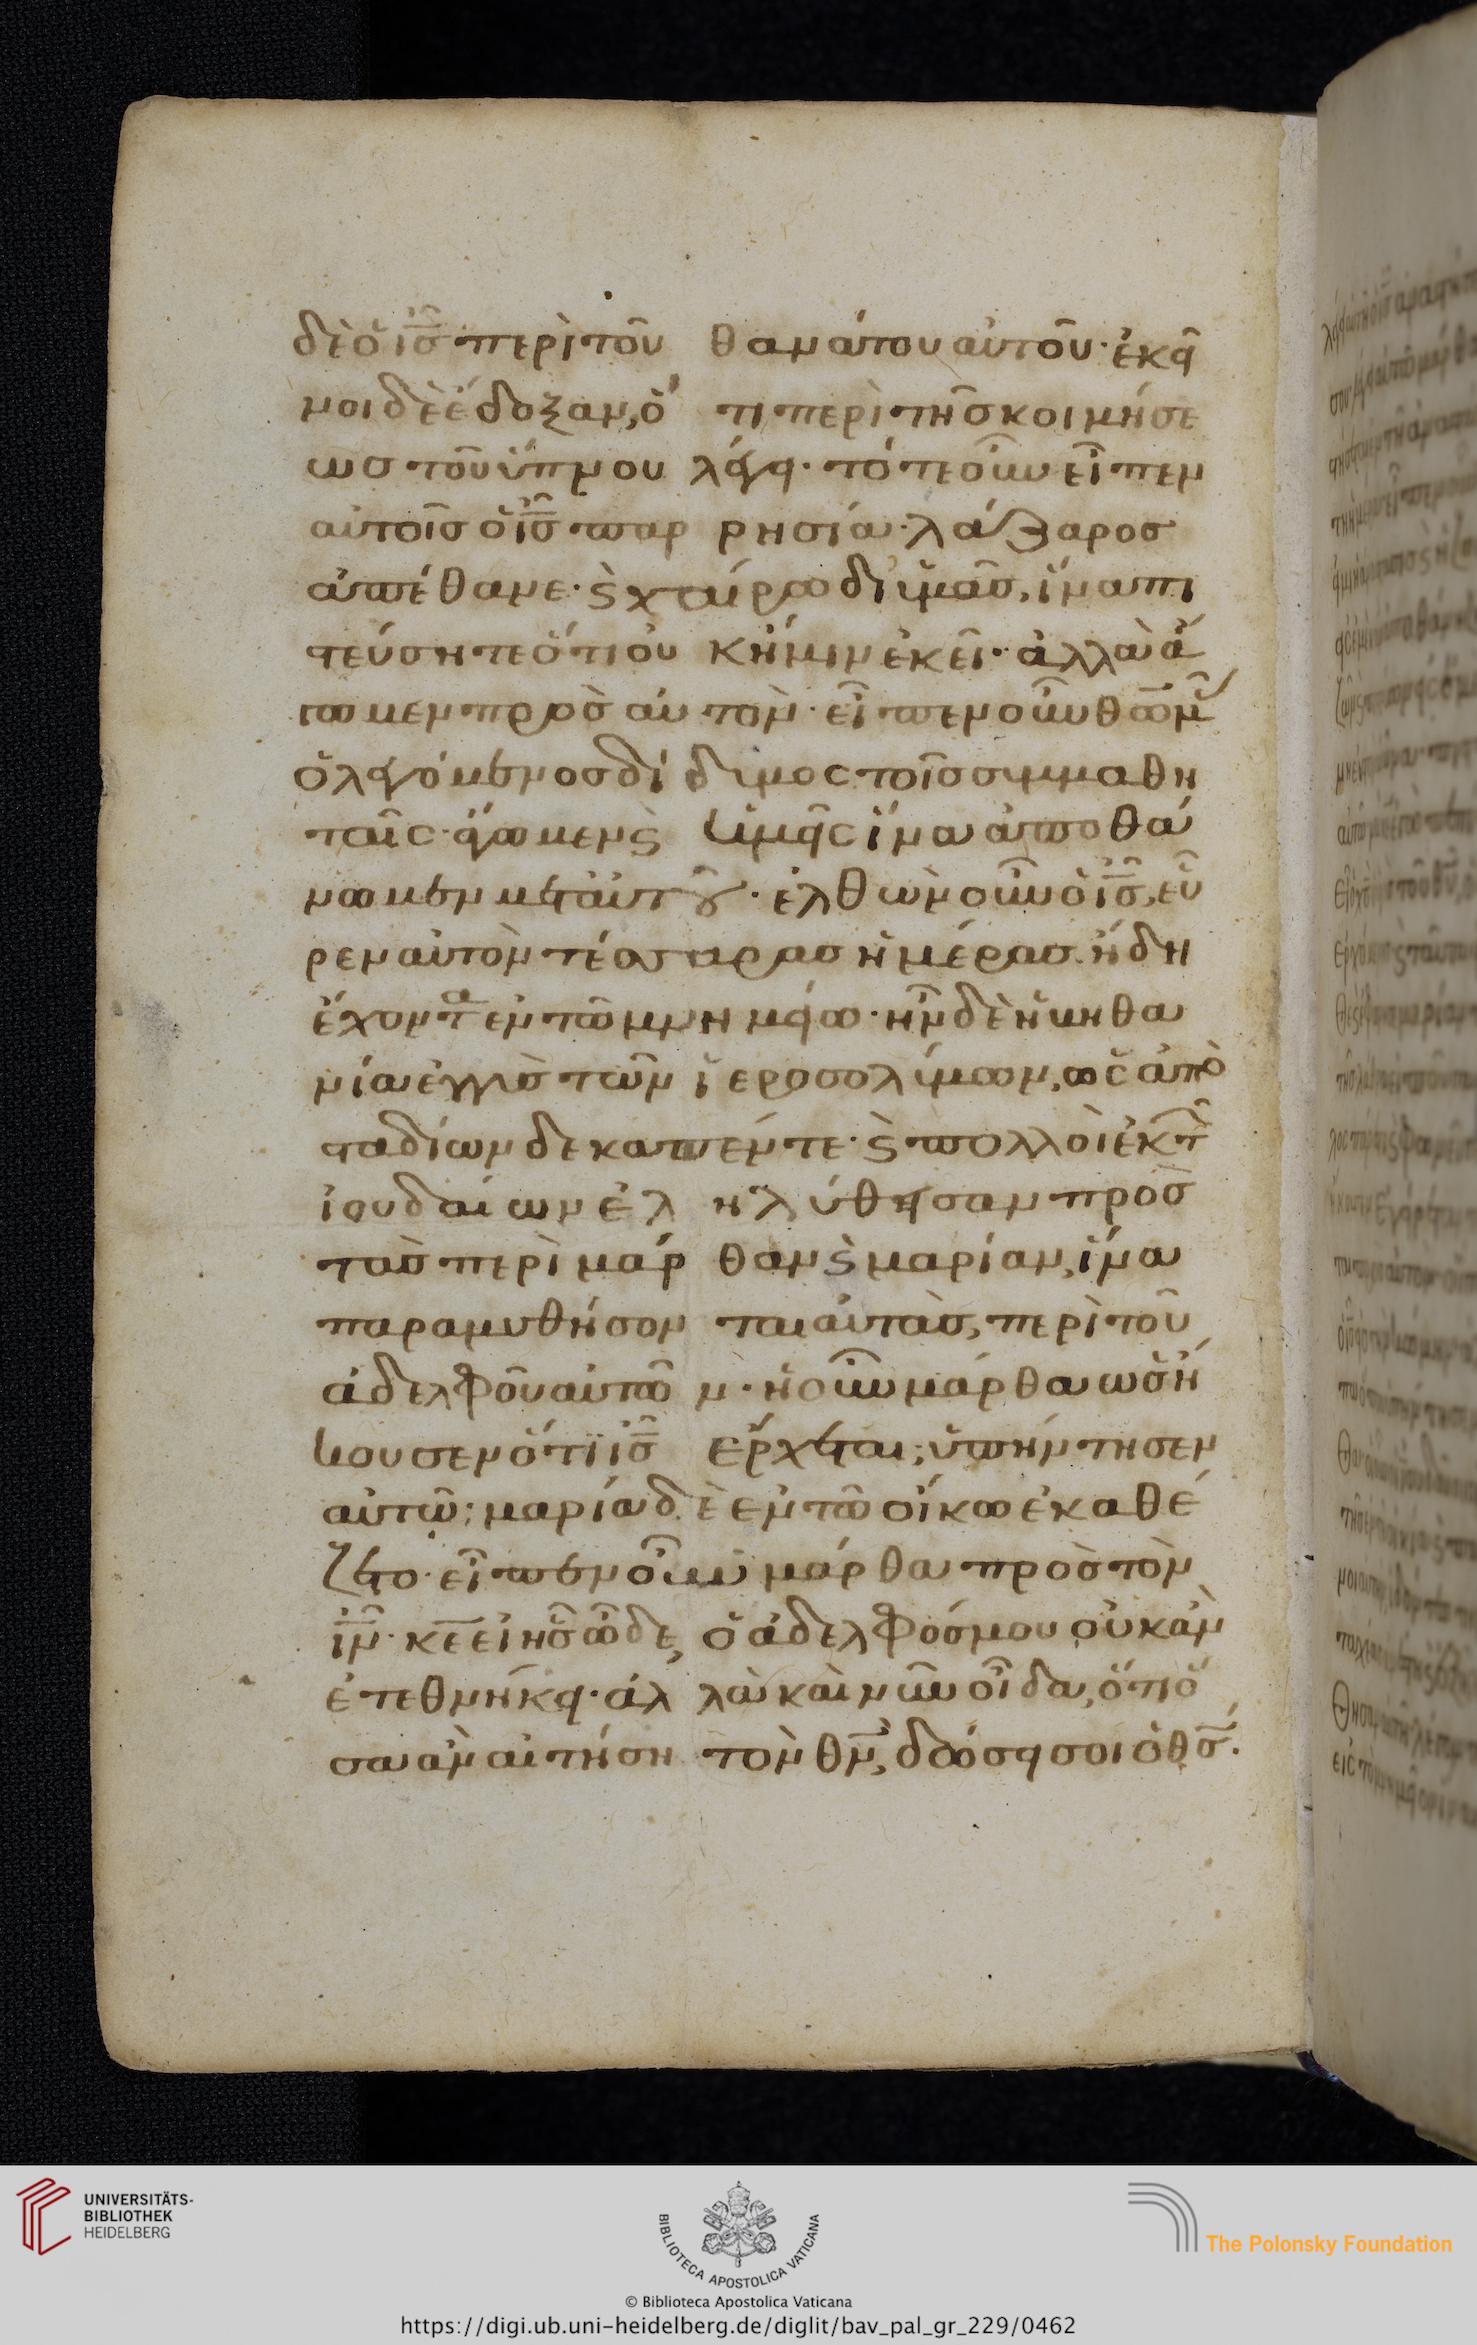 δὲ ὁ ἰ̅σ̅ περὶ τοῦ θανάτου αὐτοῦ· ἐκεῖ
νοι δὲ ἔδοξαν, ὅτι περὶ τῆς κοιμήσε
ως τοῦ ὕπνου λέγει· τότε οὖν εἶπεν
αὐτοῖς ὁ ἰ̅σ̅ παρρησία· λάζαρος
ἀπέθανε· ϗ χαίρω δι ὑμᾶς, ἵνα πι
στεύσητε ὅτι οὐκ ἤμην ἐκεῖ· ἀλλὰ ἄ
γωμεν πρὸς αὐτόν· εἶπεν οὖν θωμᾶς
ὁ λεγόμενος δίδυμος τοῖς συμμαθη
ταῖς· ἄγωμεν ϗ ἡμεῖς ἵνα ἀποθά
νωμεν μετ αὐτοῦ· ἐλθὼν οὖν ὁ ἰ̅σ̅, εὗ
ρεν αὐτὸν τέσσαρας ἡμέρας ἤδη
ἔχοντα ἐν τῶ μνημείω· ἦν δὲ ἡ βηθα
νία ἐγγὺς τῶν ἱεροσολύμων, ὡς ἀπὸ
σταδίων δεκαπέντε· ϗ πολλοὶ ἐκ τῶν
ἰουδαίων ἐληλύθησαν πρὸς
τὰς περὶ μάρθαν ϗ μαρίαν, ἵνα
παραμυθήσονται αὐτὰς, περὶ τοῦ
ἀδελφοῦ αὐτῶν· ἡ οὖν μάρθα ὡς ἤ
κουσεν ὅτι ἰ̅σ̅ ἔρχεται, ὑπήντησεν
αὐτῶ; μαρία δὲ ἐν τῶ οἴκω ἐκαθέ
ζετο· εἶπεν οὖν μάρθα πρὸς τὸν
ἰ̅ν̅· κ̅ε̅ εἰ ἦς ὧδε, ὁ ἀδελφός μου οὐκ ἂν
ἐτεθνήκει· ἀλλὰ καὶ νῦν οἶδα, ὅτι ὅ
σα ἂν αἰτήση τὸν θ̅ν̅, δώσει σοι ὁ θ̅σ̅.
UNIVERSITÄTS-
BIBLIOTHEK
HEIDELBERG
BIBLIOTECA APOSTOLICA VATICANA
The Polonsky Foundation
© Biblioteca Apostolica Vaticana
https://digi.ub.uni-heidelberg.de/diglit/bav_pal_gr_229/0462